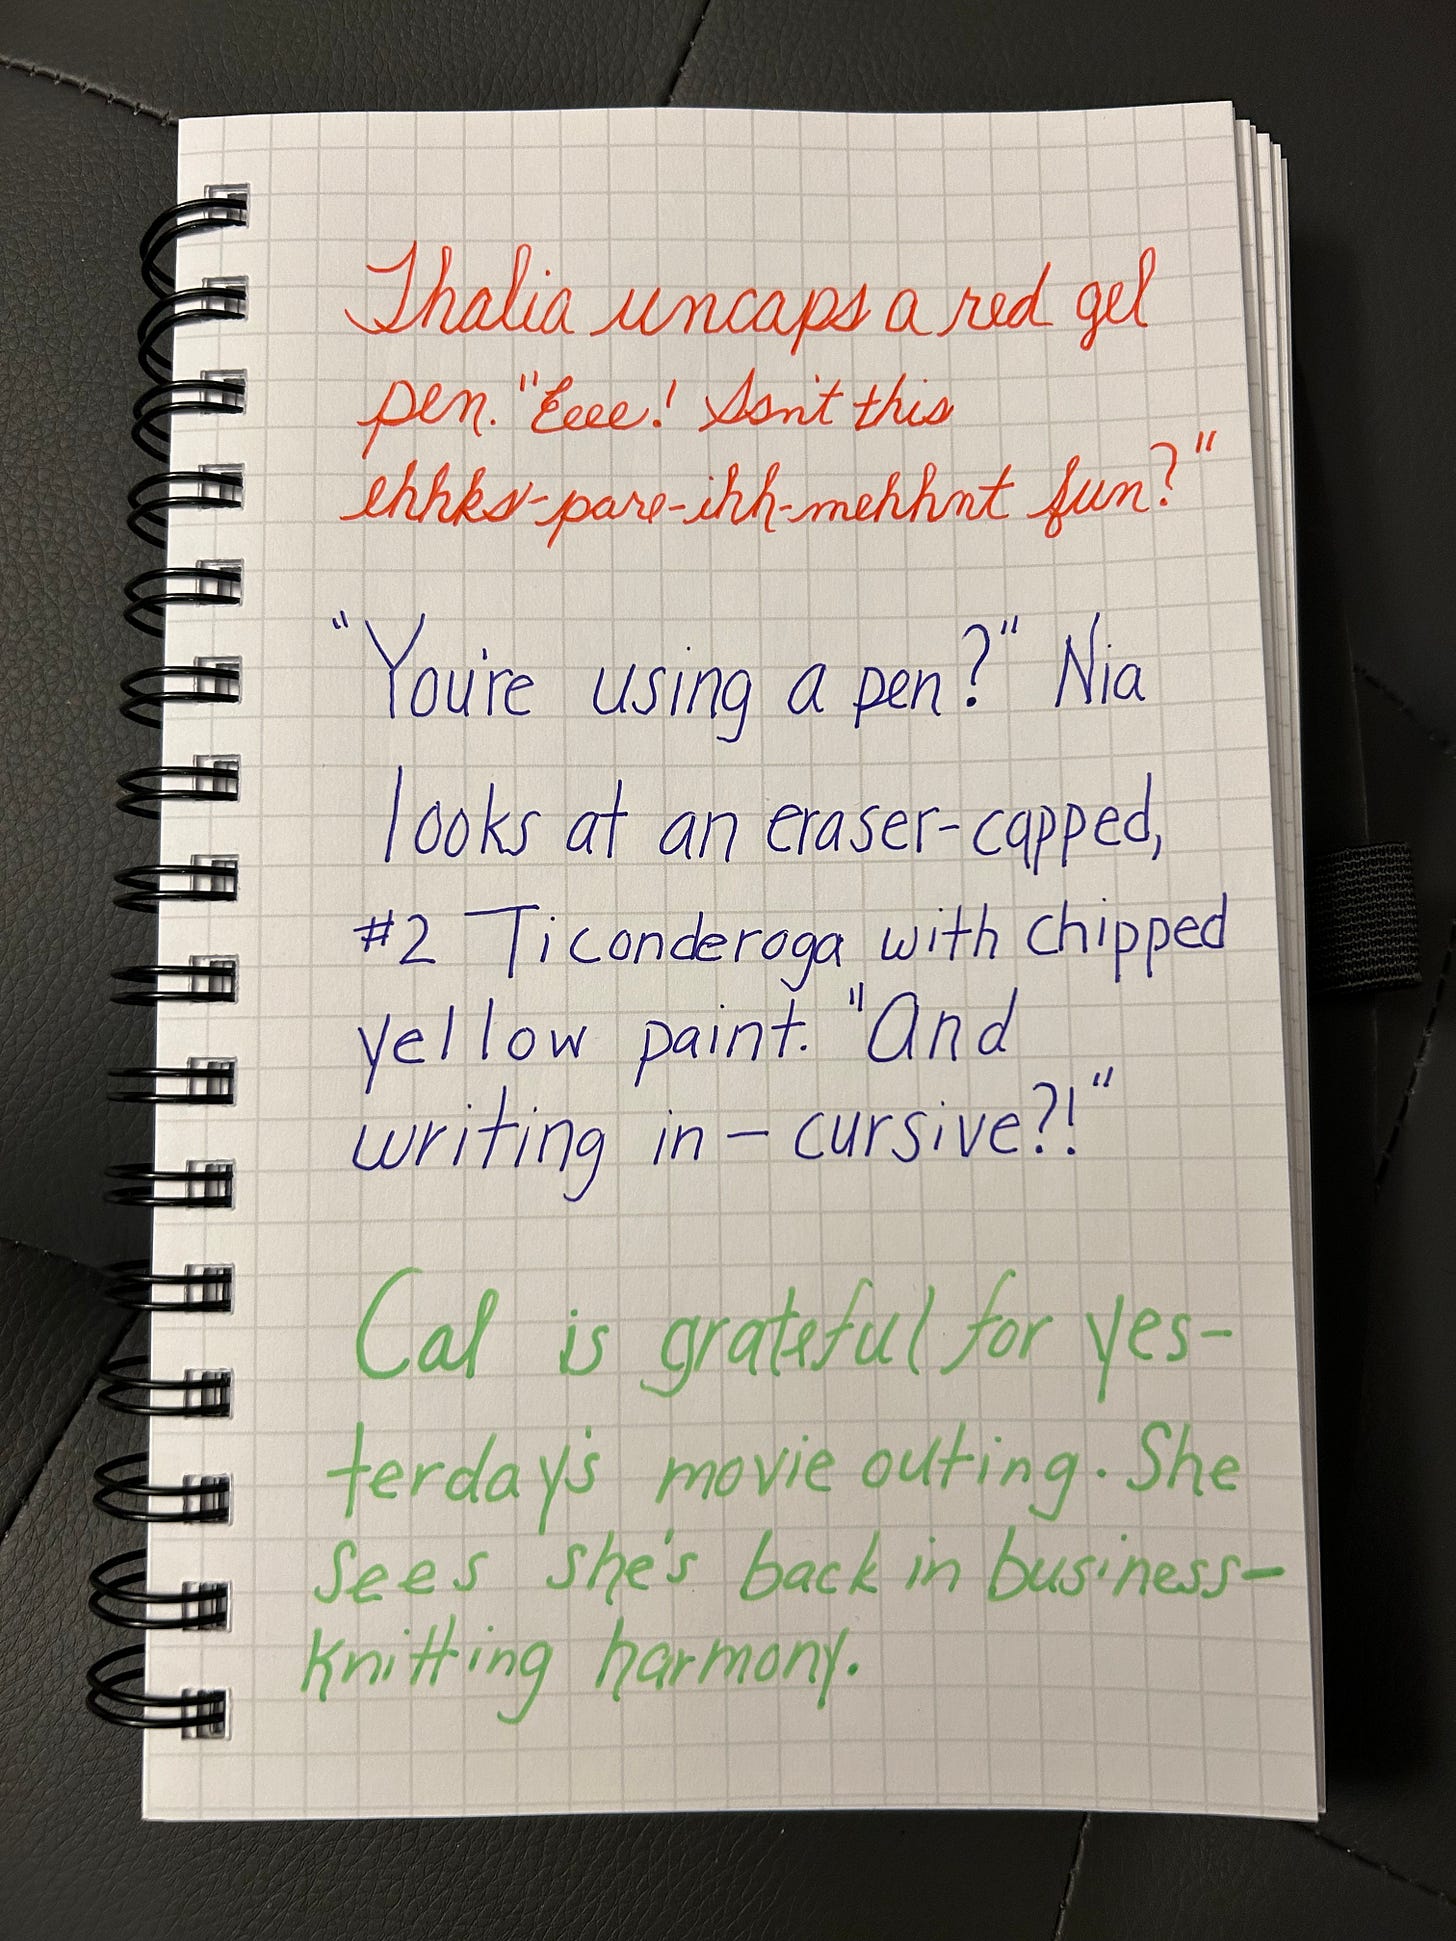 Thalia uncaps a red gel
pen. "Eeee! Isn't this
ehhks-pare-ihh-mehhnt fun?"
"You're using a pen?" Nia
looks at an eraser-capped,
#2 Ticonderoga with chipped
yellow paint. "And
writing in - cursive?!"
Cal is grateful for yes-
terday's movie outing. She
sees she's back in business-
knitting harmony.